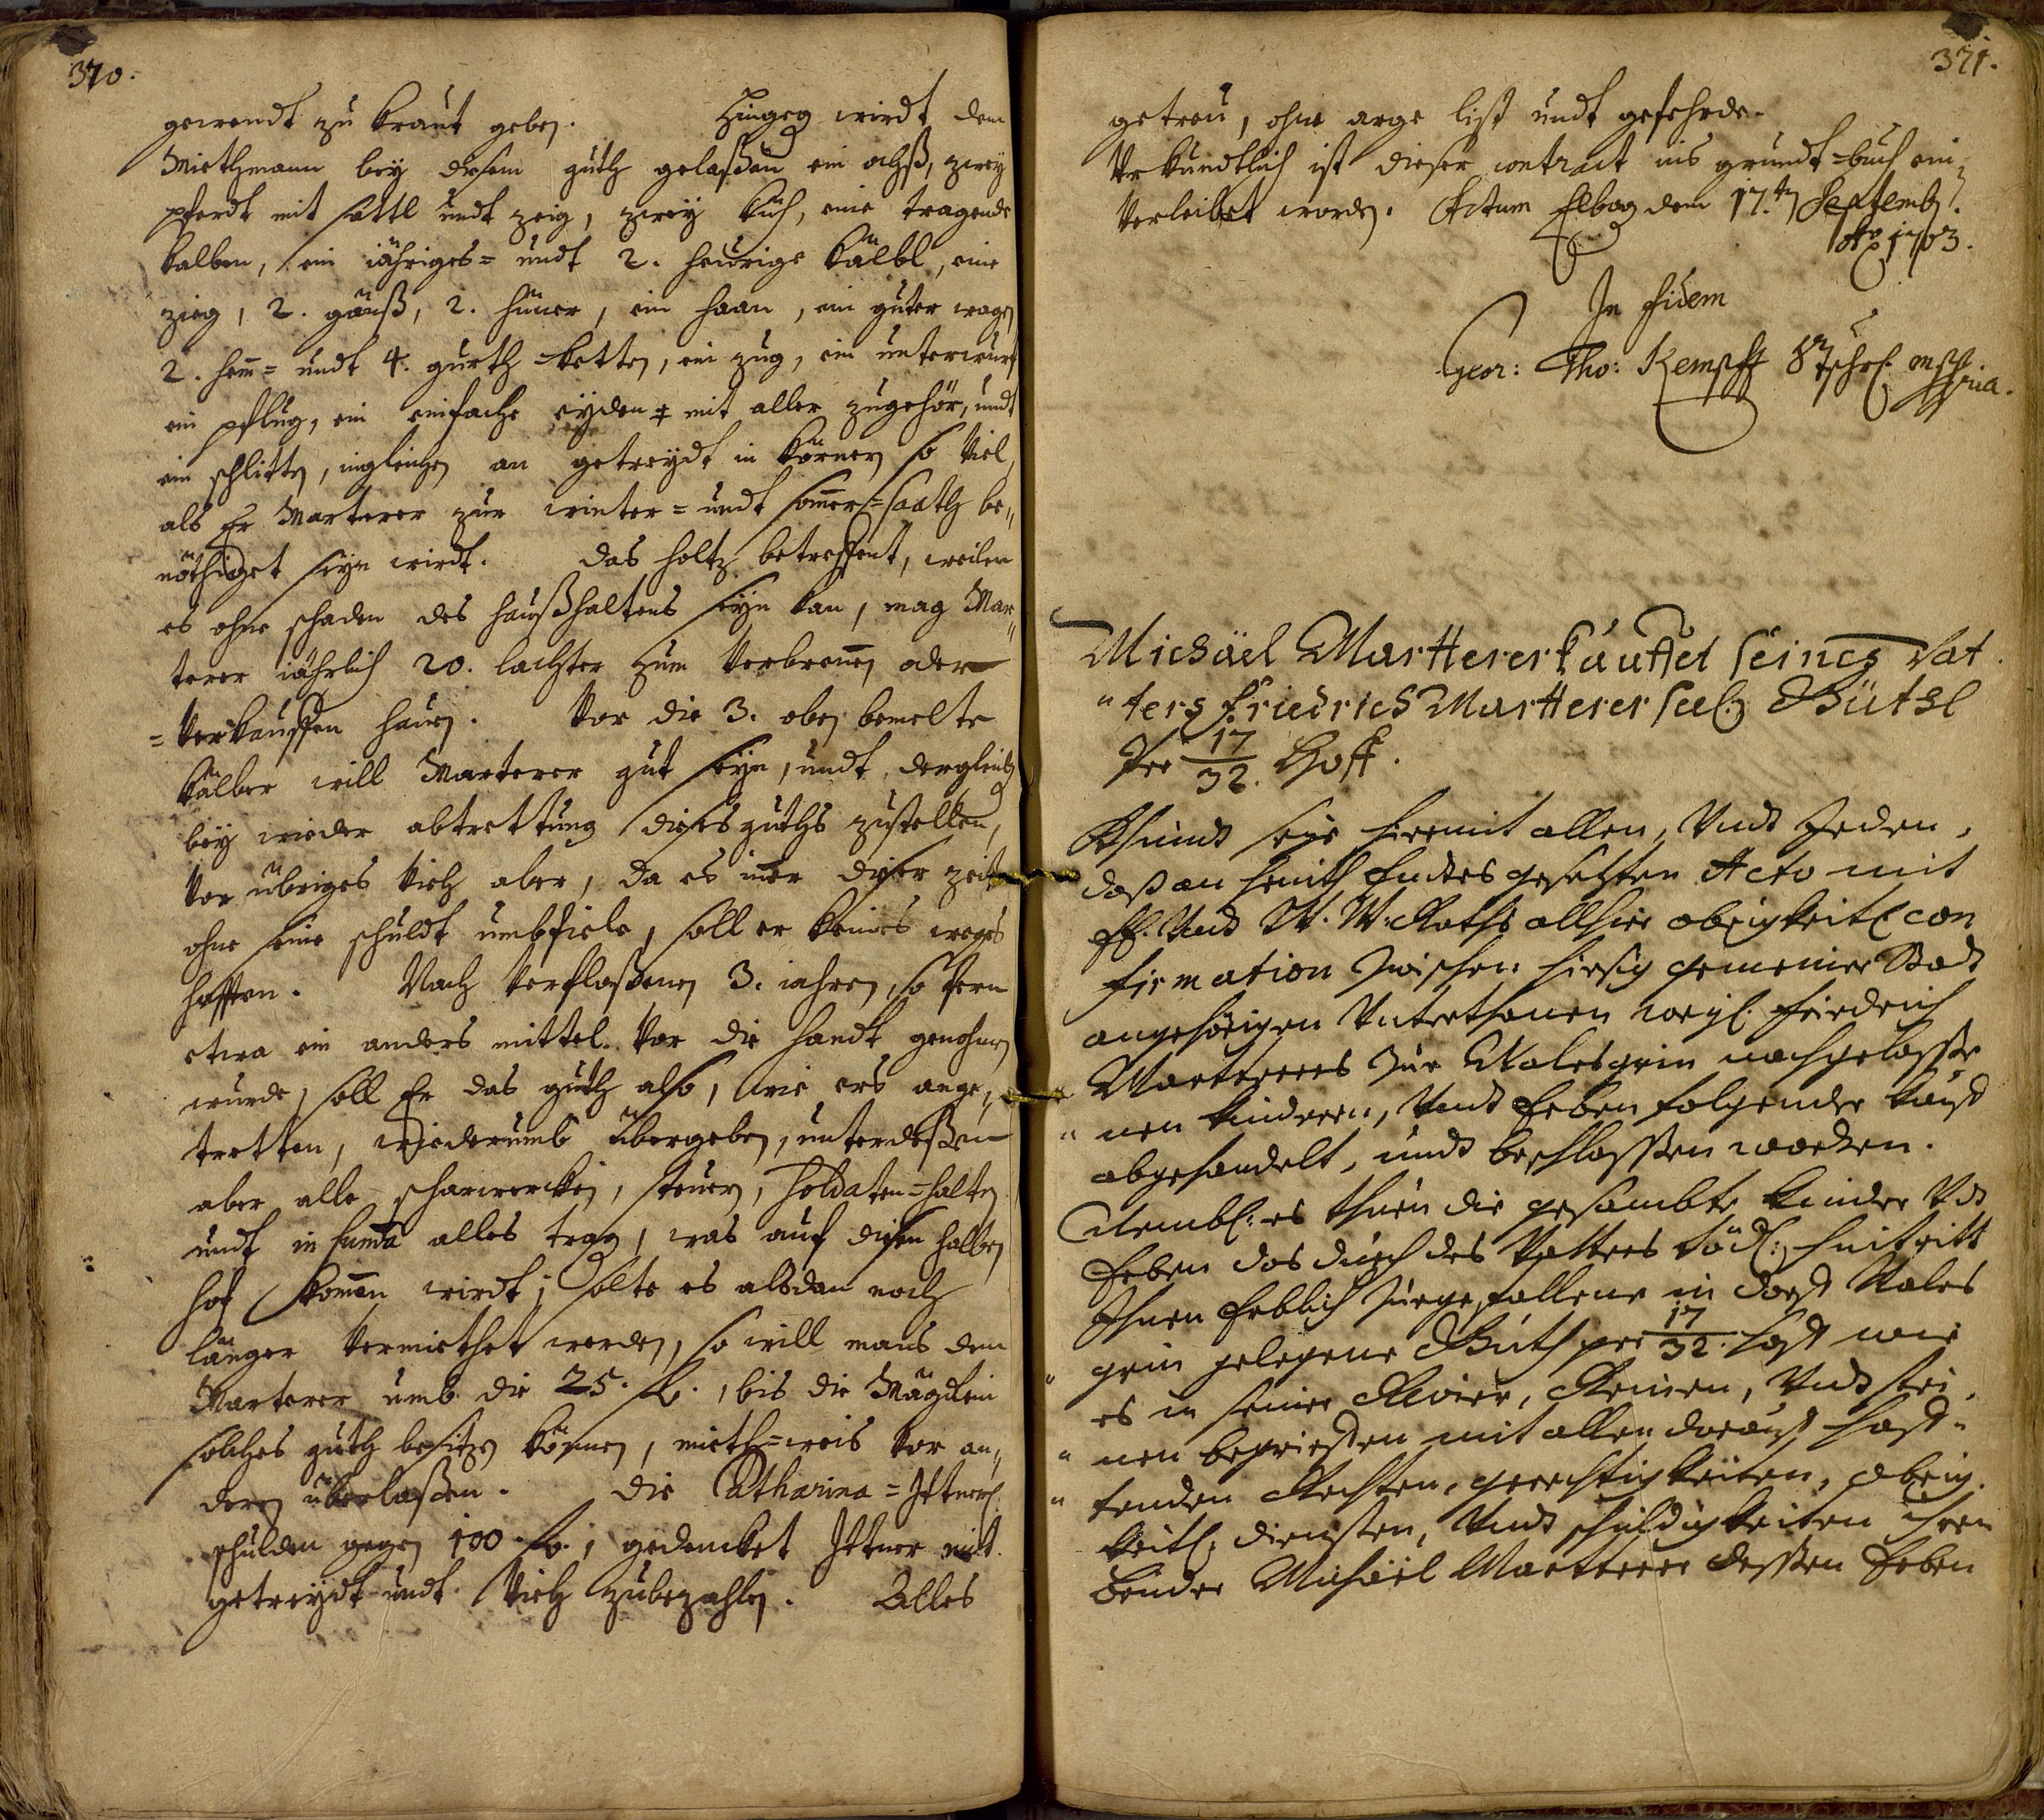 370.
gewendt zu kraut geben. Hingeg wirdt dem
Miethmann bey disem guth gelaßen ein ochß, zwey
pferdt mit sattl undt zeig, zwey küh, eine tragende
kalben, ein iähriges= undt 2. heürige kälbl, eine
zieg, 2. gänß, 2. hüner, ein haan, ein guter wagen
2. hem= undt 4. gurth=ketten, ein zug, ein unterwurf
ein pflug, ein einfache eyden mit aller zugehör, undt
ein schlitten, ingleichen an getreydt in körnern so viel,
als Er Marterer zur winter= undt somer=saath be„
nöthiget seyn wirdt. das holtz betreffent, weilen
es ohne schaden des haußhaltens seyn kan, mag Mar„
terer iährlich 20. lachter zum verbrennen oder
=verkauffen hauen. Vor die 3. oben bemelte
kälber will Marterer gut seyn, undt dergleichen
bey wieder abtrettung dieses guths zustellen,
vor übriges vieh aber, da es inner diser zeit
ohne seine schuldt umbfiele, soll er keines weges
hafften. Nach verfloßenen 3. iahren, so fern
etwa ein anders mittel vor die handt genohmen
wurde, soll Er das guth also, wie ers ange„
tretten, wiederumb übergeben, unterdeßen
aber alle scharwercken, steuern, Soldaten=halten
undt in suma alles tragen, was auf disen halben
hof komen wirdt; solte es alsdan noch
länger vermiethet werden, so will mans dem
Marterer umb die 25. fl., bis die Mägdlein
solches guth besitzen können, mieth=weis vor an„
deren überlaßen. die Catharina=Ittnerl.
schulden gegen 100 fl., gedencket Ittner mit
getreydt undt vieh zubezahlen. Alles
371.
getreu, ohne arge list undt gefehrde.
Urkundtlich ist dieser contract ins grundt=buch ein„
verleibet worden. Actum Elbogen den 17.ten Septemb.
Ao 1703.
In fidem
Geor: Tho: Kempff Stschr. mppria.
Michäel Martterer kauffet seines Vat„
„ters Friedrich Martterer seel. Güthl
per 17/32. Hoff.
Khundt seye hiermit allen, Undt Jeden,
daß an heuth Endtes gesetzten Acto mit
E. Und W. W. Raths allhier obrigkeitl. con
firmation zwischen hiesig gemeiner Stadt
angehörigen Unterthanen weyl. Friedrich
Marterers zur Walesgrün nachgelasse
„nen kinderen, Undt Erben folgender kauf
abgehandelt, undt beschlossen worden.
Nembl: es thuen die gesambte kinder Undt
Erben das durch des Vatters tödl: hintritt
Ihnen Erblich zuegefallene in dorf Wales
„grün gelegene Guth per 17/32. hof wie
es in seiner Revier, Reinen, Undt stei„
„nen begriessen mit allen darauf haf„
„tenden Rechten, gerechtigkeiten, obrig„
keitl: diensten, Undt schuldigkeiten ihren
bruder Michäel Martterer dessen Erben